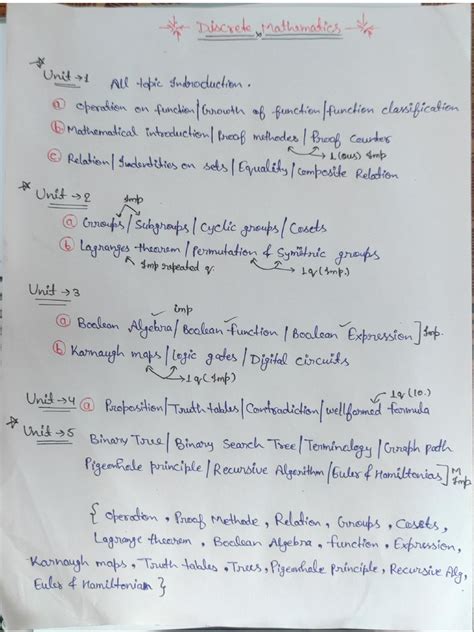 Discrete Mathematics
Unit → 1 All topic Introduction.
(a) Operation on function/Growth of function/function classification
(b) Mathematical introduction/Proof methodes/Proof Counter
1 (ous) Imp
(c) Relation/Indentities on sets/Equality/composite Relation
Unit → 2 Imp
(a) Groups/Subgroups/Cyclic groups/Cosets
(b) Lagranges theorem/Permutation & Symitric groups
Imp repeated q. 1q (Imp.)
Unit → 3
imp
(a) Boolean Algebra/Boolean function/Boolean Expression] Imp.
(b) Karnaugh maps/logic gates/Digital circuits
1q (Imp)
1q (10.)
Unit → 4 (a) Proposition/Truth tables/Contradiction/wellformed formula
Unit → 5 Binary Tree/Binary Search Tree/Terminology/Graph path
Pigeonhole principle/Recursive Algorithm/Euler & Hamiltonias] M Imp
{ Operation, Proof Methode, Relation, Groups, Cosets,
Lagrange theorem, Boolean Algebra, function, Expression,
Karnaugh maps, Truth tables, Trees, Pigeonhole Principle, Recursive Alg,
Euler & Hamiltonian }